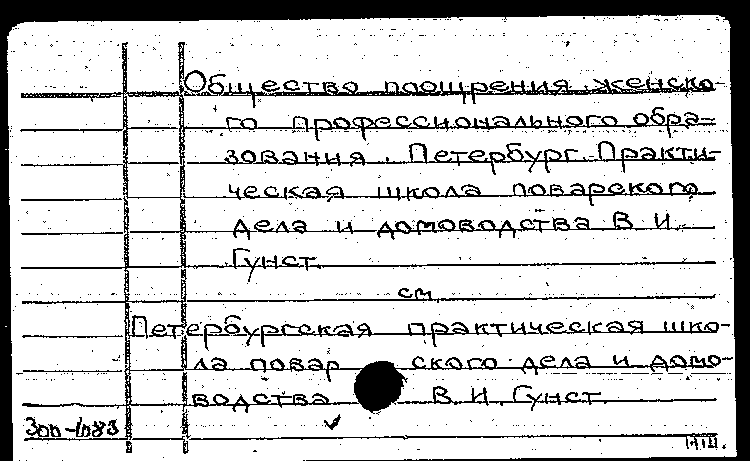 Общество поощрения женско-
го профессионального обра=
зования. Петербург. Практи-
ческая школа поварского
дела и домоводства В. И.
Гунст.
см.
Петербургская практическая шко-
ла поварского дела и домо-
водства В. И. Гунст.